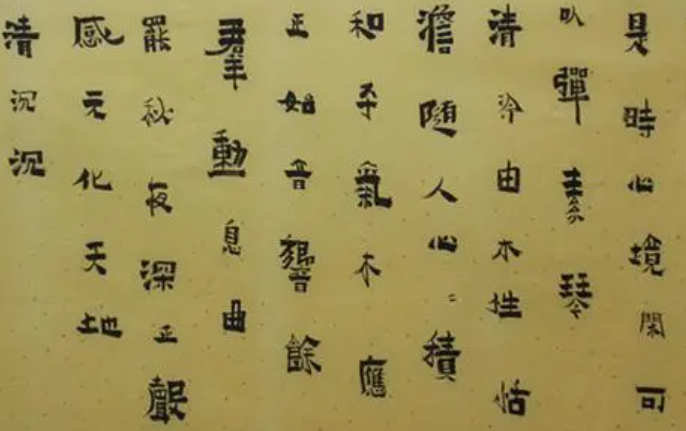 是時心境閑可
㕥彈素琴
清泠由木性恬
澹隨人心〻積
和平氣木應
正始音響餘
羣動息曲
罷秋夜深正聲
感元化天地
清沉沉